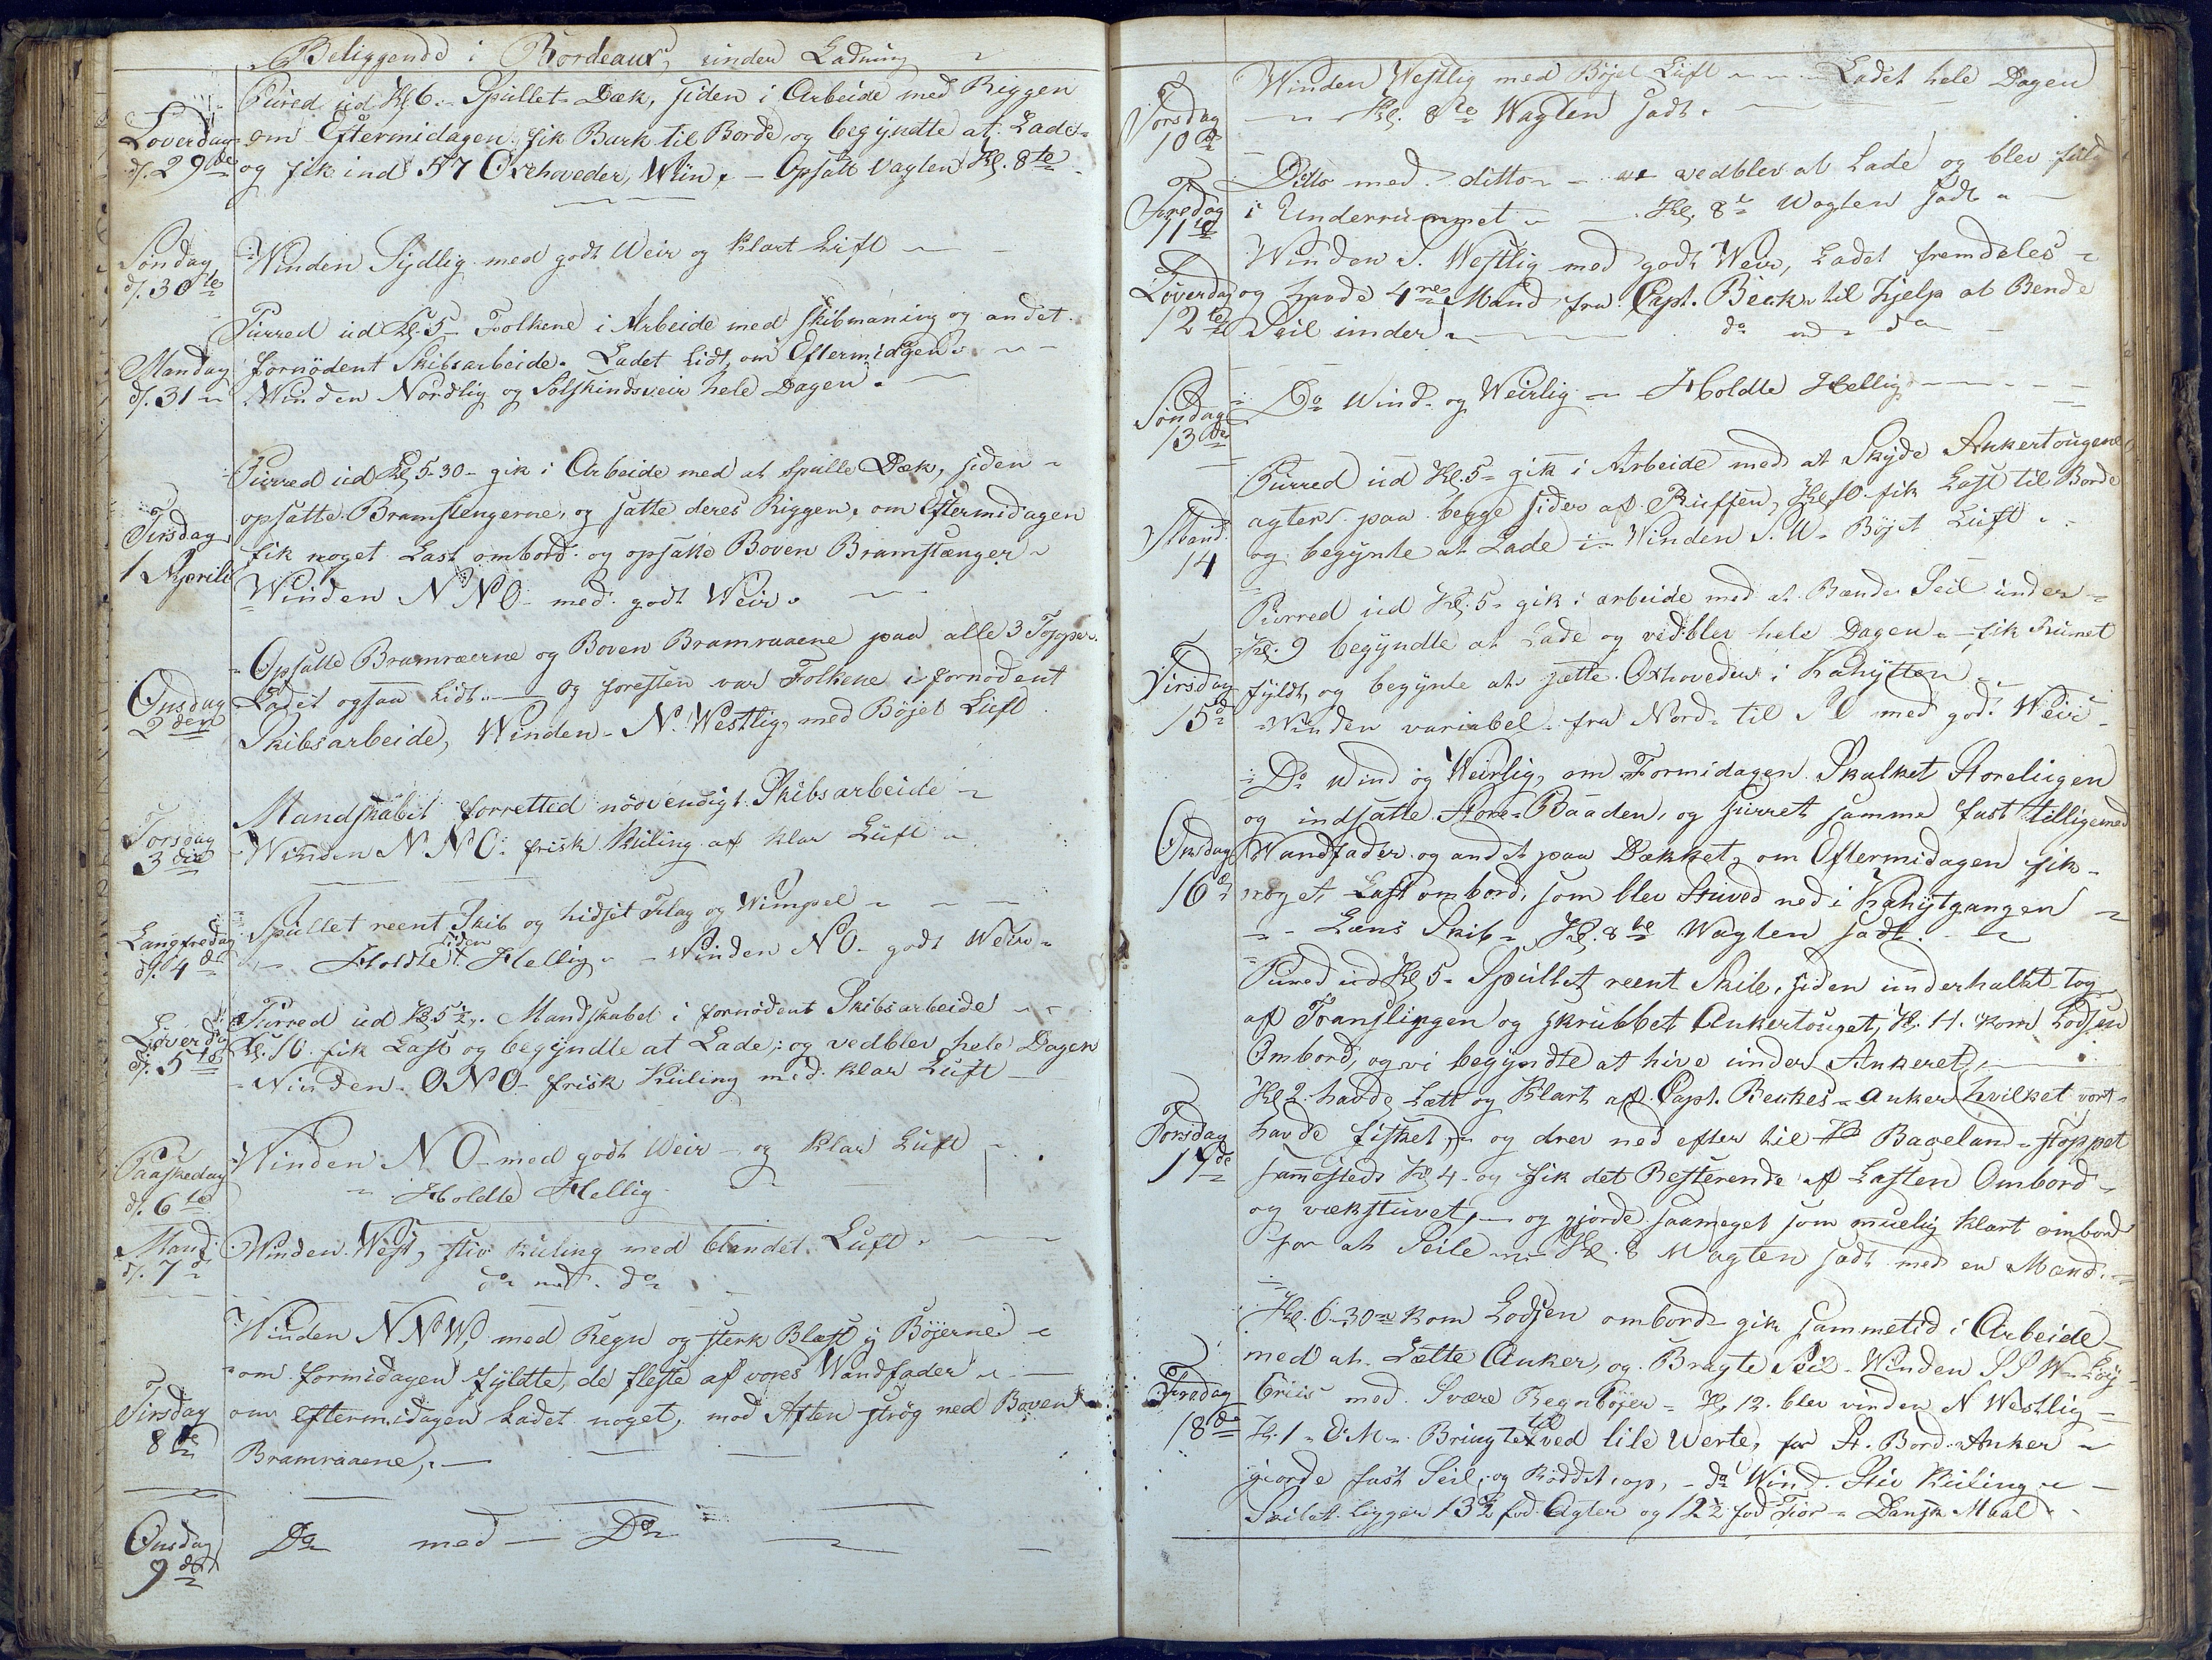 Beliggende i Bordeaux, under Ladning
Loverdag d. 29de
Pured ud Kl 6. Spullet Dæk, siden i Arbeide med Riggen
om Eftermidagen, fik Bark til Borde og begyndte at Lade
og fik ind 57 Oxehoveder, Wiin, - Opsatt Vagten Kl. 8te
Søndag d. 30te
Winden Sydlig med godt Veir og klart Luft
Mandag d. 31
Purred ud Kl. 5 Folkene i Arbeide med skibmaning og andet
fornødent Skibsarbeide. Ladet lidt, om Eftermidgen.
Winden Nordlig og Solskindsveir hele Dagen.
Tirsdag 1 Aperil
Purred ud Kl. 5-30 - gik i Arbeide med at spulle Dæk, siden
opsatte Bramstengerne, og satte deres Riggen, om Eftermidagen
fik noget Last ombord og opsatte Boven Bramstænger
Winden NNO med godt Weir.
Onsdag 2den
Opsatte Bramræerne og Boven Bramraaene paa alle 3 Toppe.
Ladet ogsaa lidt. og foresten var Folkene i fornødent
Skibsarbeide, Winden N. Westlig, med Bøjet Luft
Torsdag 3die
Mandskabet forretted nødvendigt Skibsarbeide
Winden NNO. frisk Kuling af klar Luft
Langfredag d. 4de
Spullet reent Skib og hidset Flag og Wimpel
siden
Holdte Hellig. - Winden NO godt Weir
Løverdag d. 5te
Purred ud Kl. 5½. Mandskabet i fornødent Skibsarbeide
Kl. 10. fik Last og begyndte at Lade, og vedblev hele Dagen
Winden ONO frisk Kuling med klar Luft
Paaskedag d. 6te
Winden NO med godt Weir og klar Luft
Holdte Hellig
Mand d. 7de
Winden West, stiv Kuling med blandet Luft.
do med do
Tirsdag 8de
Winden NNW, med Regn og sterk Blæst i Bøjerne
om formidagen fyldte, de fleste af vores Wandfader
om eftermidagen Ladet noget, mod Aften strøg ned Boven
Bramraaene,
Onsdag 9de
Do med Do
Torsdag 10de
Winden Westlig med Bøjet Luft - Ladet hele Dagen
Kl. 8te Wagten sadt.
Fredag 11te
Ditto med ditto - vedblev at Lade og blev fuld
i Underrummet - Kl. 8te Wagten sadt
Løverdag 12te
Winden S. Westlig med godt Weir, Ladet fremdeles
og havde 4re Mand fra Capt. Beck til hjelp at Bende
Seil under do med do
Søndag 13de
Do Wind og Weirlig - Holdte Hellig
Mand. 14
Purred ud Kl. 5 gik i Arbeide med at Skyde Ankertougene
agters paa begge sider af Ruffen, Kl. 10 fik Last til Borde
og begynte at Lade - Winden S.W. Bøjet Luft.
Tirsdag 15de
Purred ud Kl. 5 gik i arbeide med at Bænde Seil under
Kl. 9 begyndte at Lade og vedblev hele Dagen - fik Rumet
fyldt, og begynte at sette Oxhoveder i Kahytten
Winden variabel fra Nord til med godt Weir
Onsdag 16de
Do Wind og Weirlig, om Formidagen Skalket Storelugen
og indsatte Store-Baaden, og surret samme fast tilligemed
Wandfader og andet paa Dækket, om Eftermidagen fik
noget Last ombord, som blev Stuved ned i Kahytgangen
Læns Skib. Kl. 8te Wagten sadt.
Torsdag 17de
Pured ud Kl 5 Spullet reent Skib, siden underhalkt tog
af og skrubbet Ankertouget, Kl. 11. kom Lodsen
Ombord, og vi begyndte at hive under Ankeret,
Kl. 2. havde Lett og Klart af Capt. Beckes Anker hvilket vort
havde fisket, og drev ned efter til Baceland - stoppet
sammesteds Kl. 4. og fik det Resterende af Lasten Ombord
og vækstuvet, - og gjorde saameget som muelig klart ombord
for at Seile - Kl. 8 Wagten sadt med en Mand.
Fredag 18de
Kl. 6-30 kom Lodsen ombord - gik sammetid i Arbeide
med at Lette Anker, og Bragte Seil. Winden SSW
med Svære Regnbøjer - Kl. 12. blev vinden N Westlig
Kl. 1 - E.M. Bringte til ved lile Verte, for St. Bord. Anker
gjorde fast Seil, og Røddet op, - do Wind. Stiv Kuling
Seilet ligger 13½ fod Agter og 12½ fod For - Dansk Maal